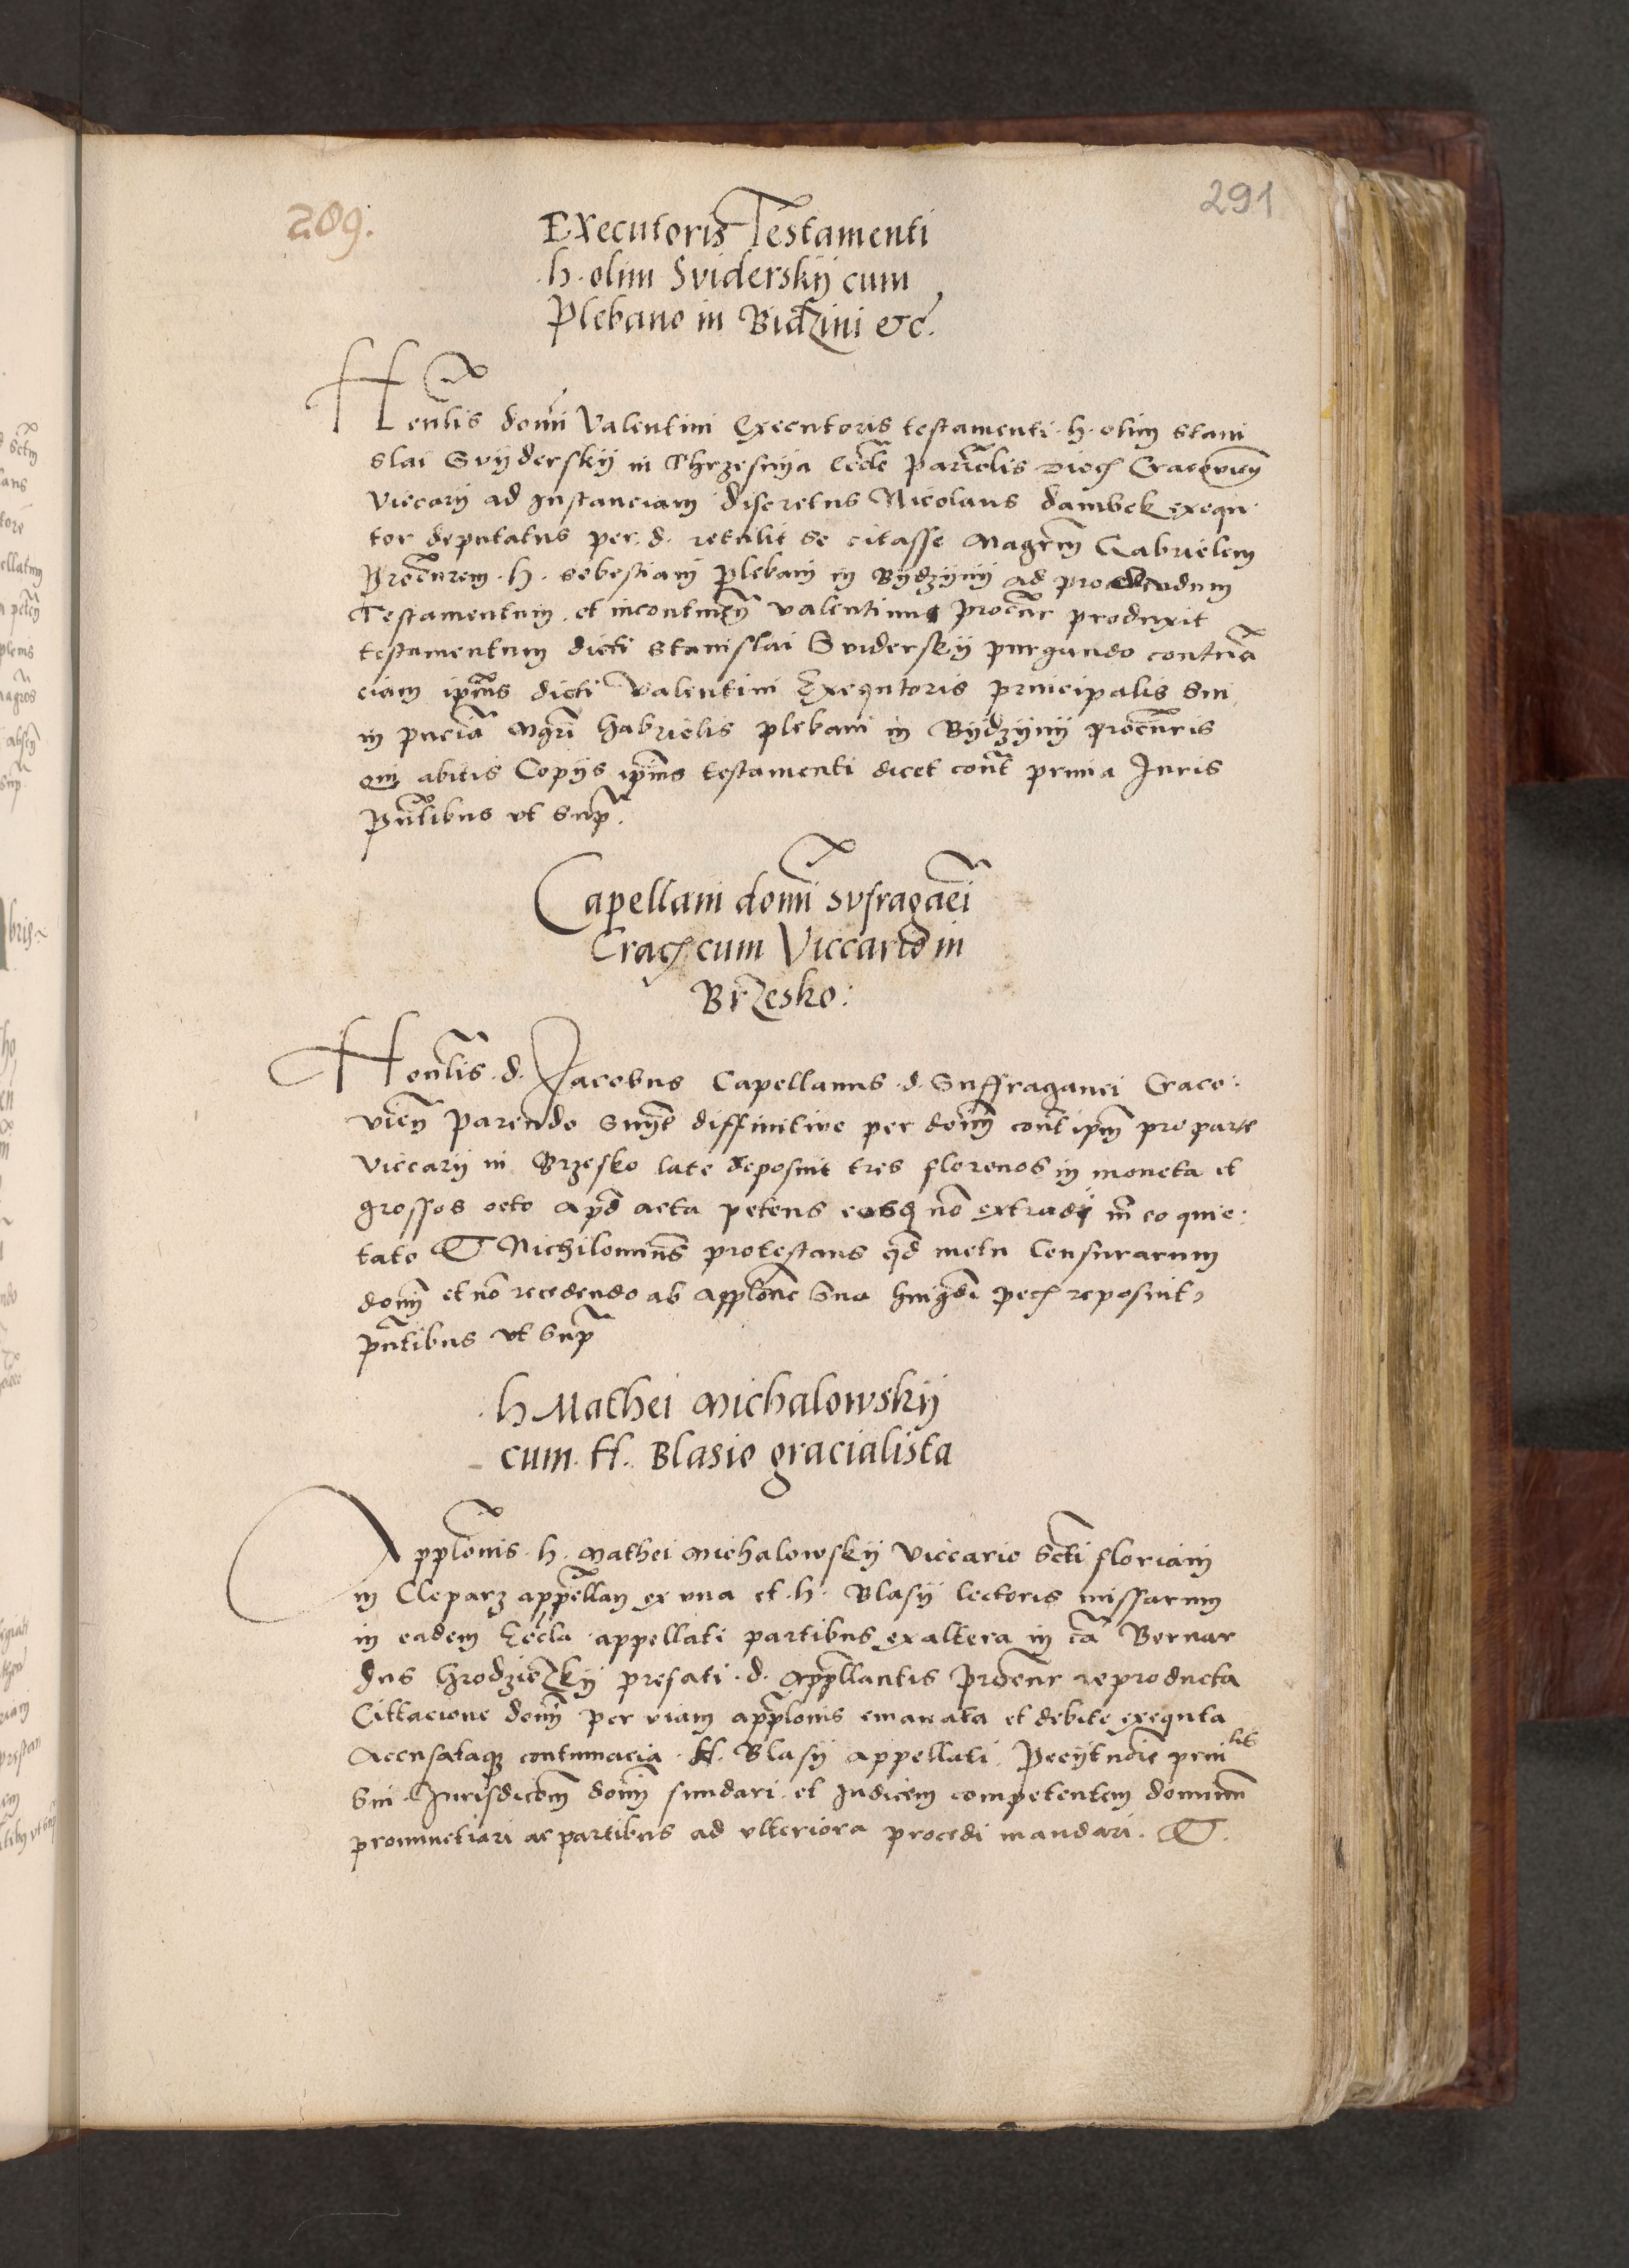 289.
291
Executoris Testamenti
h. olim Sviderskÿ cum
Plebano in Bidzini etc.
Honlis domi Valentini Executoris testamenti h. olim Stani
slai Svÿderskÿ in Chrzesnÿa Ecclie parrolis dioc Cracovien
viccarÿ ad Instanciam discretus Nicolaus dambek exequ
tor deputatus per. d. retulit se citasse Magrm Gabrielem
procurem. h. Sebestiani plebani in Bÿdzÿnÿ ad procedendum
Testamentum. et incontinen Valentinus procur produxit
testamentum dicti Stanislai Sviderskÿ purgando contuma
ciam ipius dicti Valentini Exequtoris principalis sui
in pncia Mgri Gabrielis plebani in Bÿdzÿnÿ procuris
qui abitis Copÿs ipius testamenti dicet cont prima Juris
pntibus ut supr.
Capellani domi sufraganei
Crac cum Viccario in
Brzesko:
Honlis. d. Jacobus Capellanus. d. Suffraganei Craco:
vien parendo snie diffinitive per dnm cont ipm pro parte
viccarÿ in Brzesko late deposuit tres florenos in moneta et
grossos octo apd acta petens eosq no extradi nisi eo quie:
tato Nichilominus protestans qd metu Censurarum
domi et no recedendo ab applone sua hmoi pec reposuit,
pntibus ut supr
h Mathei Michalowskÿ
cum. H. Blasio gracialista
Applonis. h. Mathei Michalowskÿ viccario Scti floriani
in Cleparz appellan ex una et. h. Blasÿ lectoris missarum
in eadem Eccla appellati partibus ex altera in ca Bernar
dus Grodzieczkÿ prefati. d. appellantis procur reproducta
Cittacione domi per viam applonis emanata et debite exequta
Accusataque contumacia. H. Blasÿ appellati. Peciit ndie prin lis
sui Jurisdicom domi fundari et Judicem competentem dominum
pronunctiari ac partibus ad ulteriora procedi mandari.